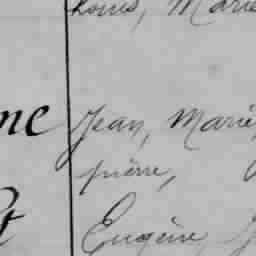 Louis, Marie
ne Jean, Marie,
pierre,
Eugène